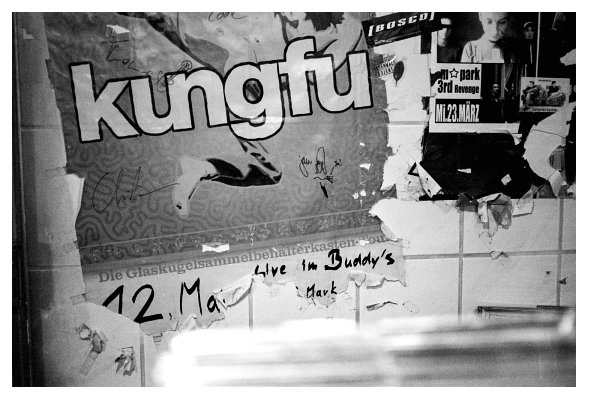 [BOSCO]
kungfu
park
3rd Revenge
MI.23.MÄRZ
Die Glaskugelsammelbehälterkasten
Live im Buddy's
12. Mai
Mark